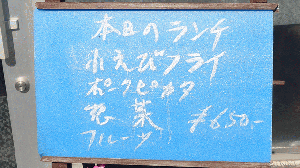 本日のランチ
小えびフライ
ポークピカタ
惣菜
フルーツ ¥650.-